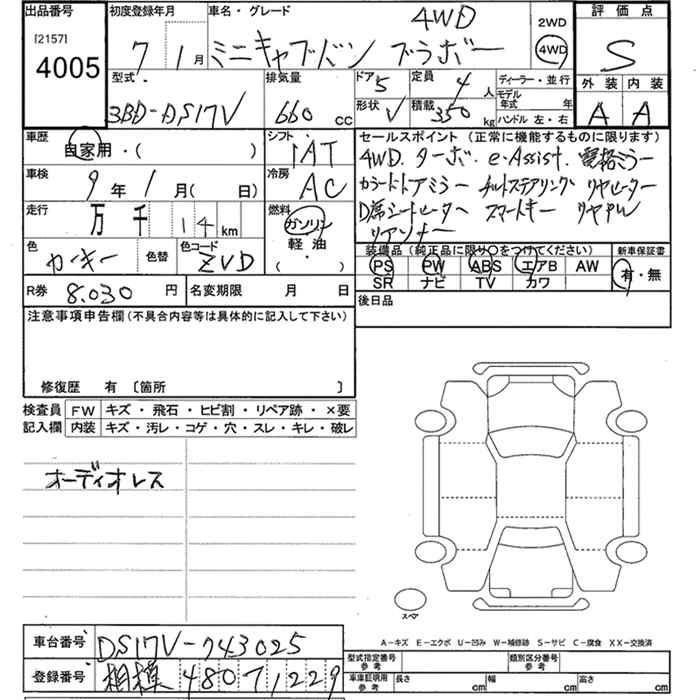 出品番号
[2157]
4005
初度登録年月
7 1月
車名・グレード
4WD
ミニキャブバン ブラボー
2WD
4WD
評価点
S
外装 内装
A A
型式
3BD-DS17V
排気量
660 CC
ドア 5
定員 4人
形状 V
積載 350 kg
ディーラー・並行
モデル年式 年
ハンドル 左・右
車歴
自家用・( )
シフト
IAT
車検
9年 1月( 日)
冷房
AC
走行
万 千 14 km
燃料
ガソリン
軽油
( )
色
カーキー
色替
色コード
ZVD
R券 8.030 円
名変期限 月 日
セールスポイント(正常に機能するものに限ります)
4WD. ターボ. e-Assist. 電格ミラー
カラードドアミラー チルトステアリング リヤヒーター
D席シートヒーター スマートキー リヤPW
装備品(純正品に限り○をつけてください)
PS PW ABS エアB AW
SR ナビ TV カワ
新車保証書
有・無
後日品
注意事項申告欄(不具合内容等は具体的に記入して下さい)
修復歴 有 〔箇所 〕
検査員記入欄
FW キズ・飛石・ヒビ割・リペア跡・×要
内装 キズ・汚レ・コゲ・穴・スレ・キレ・破レ
オーディオレス
スペア
A-キズ E-エクボ U-凹み W-補修跡 S-サビ C-腐食 XX-交換済
車台番号 DS17V-743025
登録番号 相模 480 71229
型式指定番号 参考
類別区分番号 参考
車庫証明用 参考
長さ cm 幅 cm 高さ cm